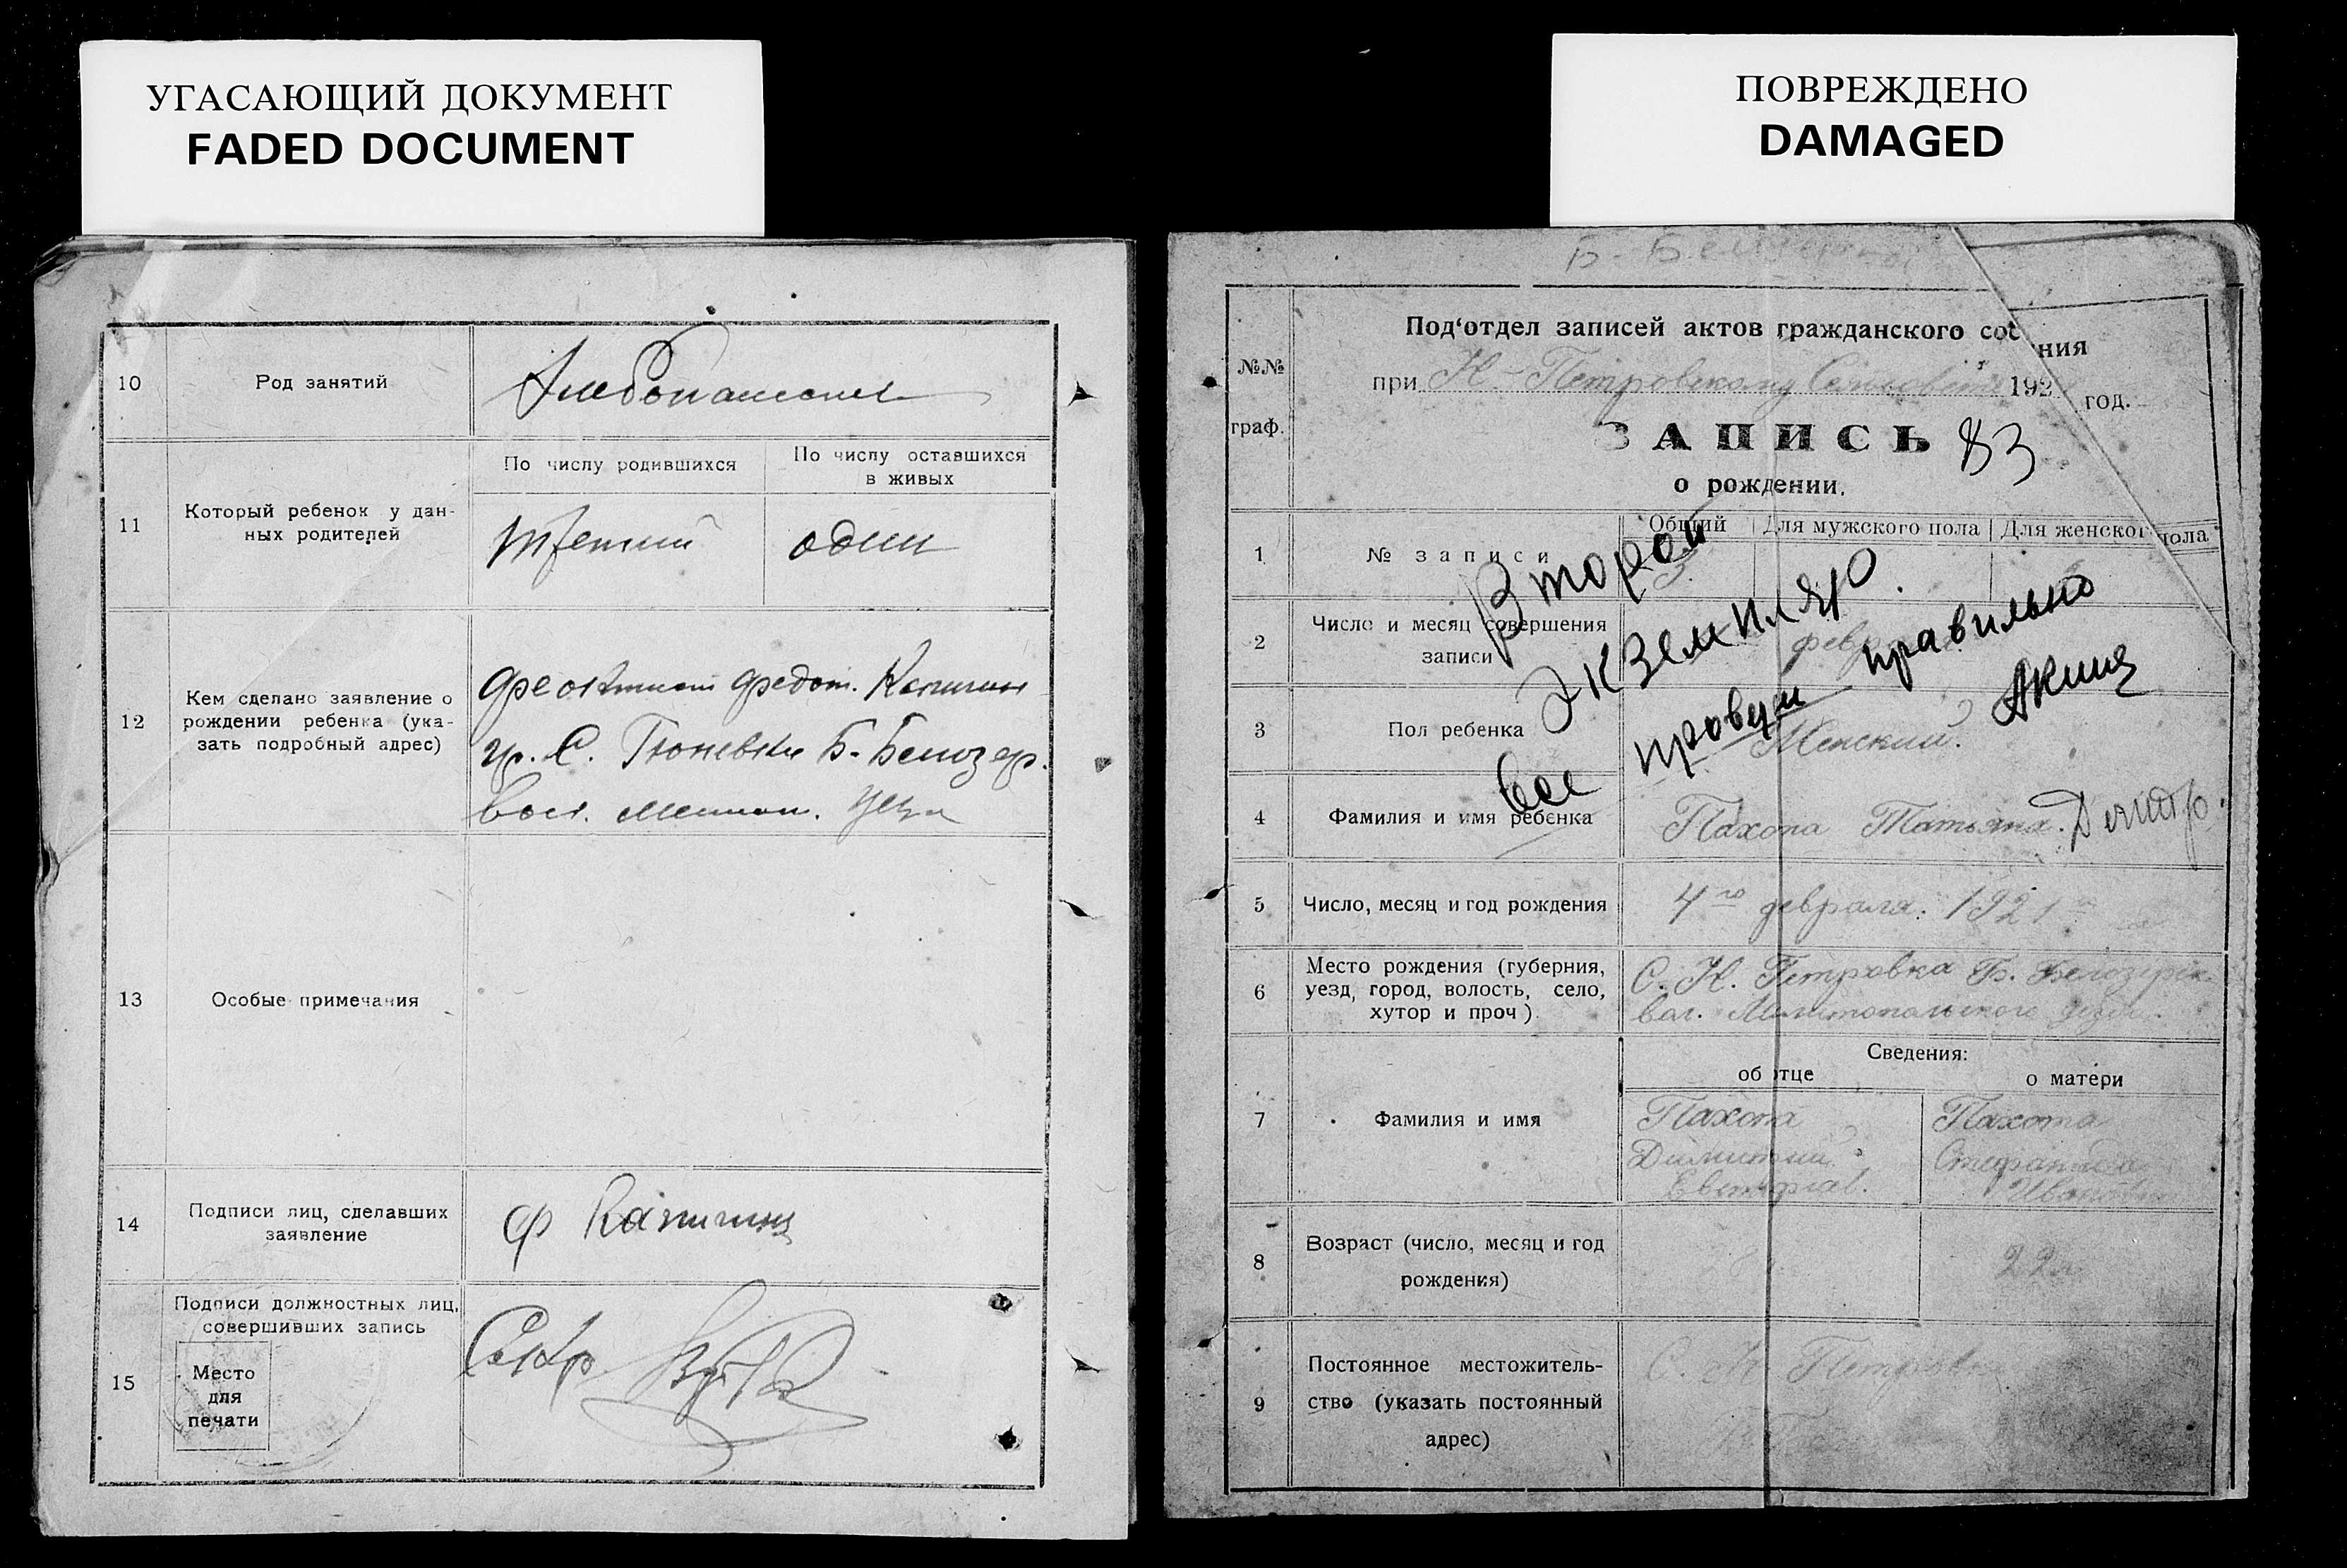 УГАСАЮЩИЙ ДОКУМЕНТ
FADED DOCUMENT
10
Род занятий
Хлебопашец
11
Который ребенок у дан-
ных родителей
По числу родившихся
третий
По числу оставшихся
в живых
один
12
Кем сделано заявление о
рождении ребенка (ука-
зать подробный адрес)
Феоктист Федот.
гр. С. Б. Белозер.
вол. уезд
13
Особые примечания
14
Подписи лиц, сделавших
заявление
Ф
15
Подписи должностных лиц,
совершивших запись
Место
для
печати
Секр.
ПОВРЕЖДЕНО
DAMAGED
№№
граф.
Под‘отдел записей актов гражданского сос ния
при Н-Петровскому Сельсовете 192 год.
ЗАПИСЬ 83
о рождении.
1
№ записи
Общий
Для мужского пола
Для женског пола
3.
Второй
экземпляр.
все проверил правильно
2
Число и месяц совершения
записи
февр
3
Пол ребенка
Женский.
4
Фамилия и имя ребенка
Пахота Татьяна. Дмитр.
5
Число, месяц и год рождения
4го февраля: 1921
6
Место рождения (губерния,
уезд, город, волость, село,
хутор и проч)
С. Н. Петровка Б. Белозерск.
вол. Мелитопольского уезда.
Сведения:
об отце
о матери
7
Фамилия и имя
Пахота
Димитрий
Пахота
Степанида
8
Возраст (число, месяц и год
рождения)
22
9
Постоянное местожитель-
ство (указать постоянный
адрес)
С. Н. Петровка